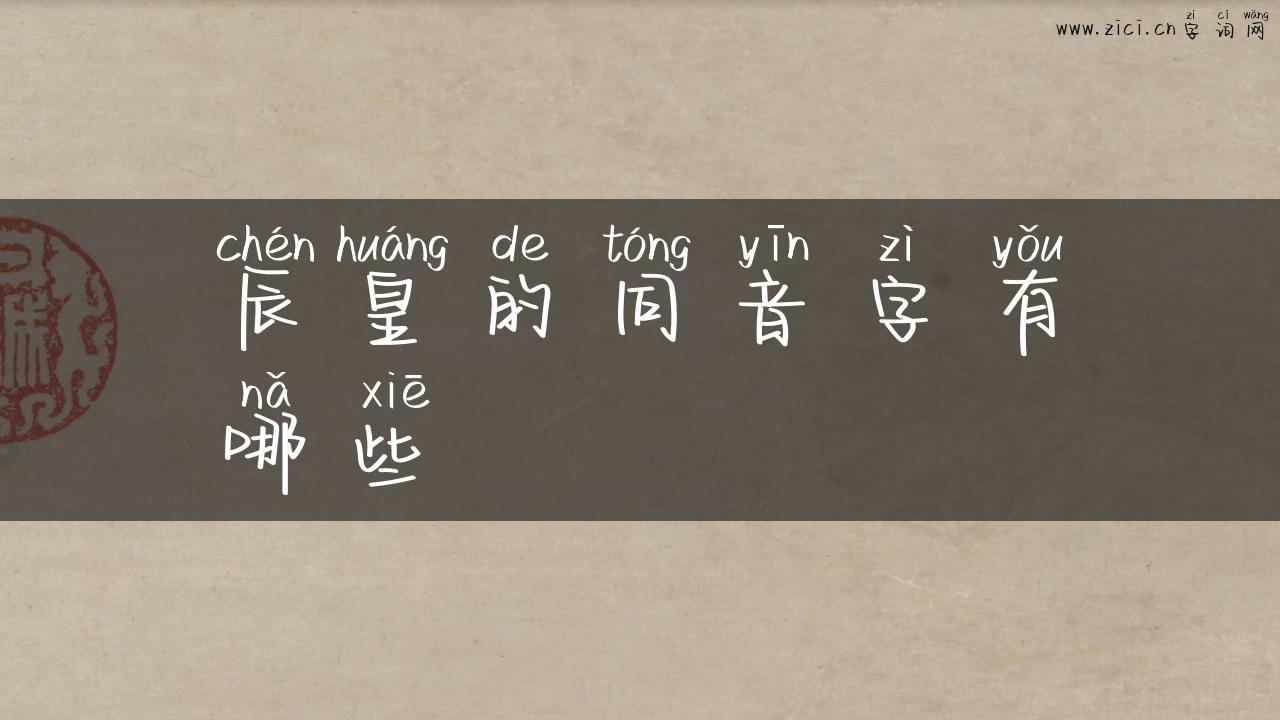 zì cí wǎng
www.zici.cn字词网
chén huáng de tóng yīn zì yǒu
辰皇的同音字有
nǎ xiē
哪些